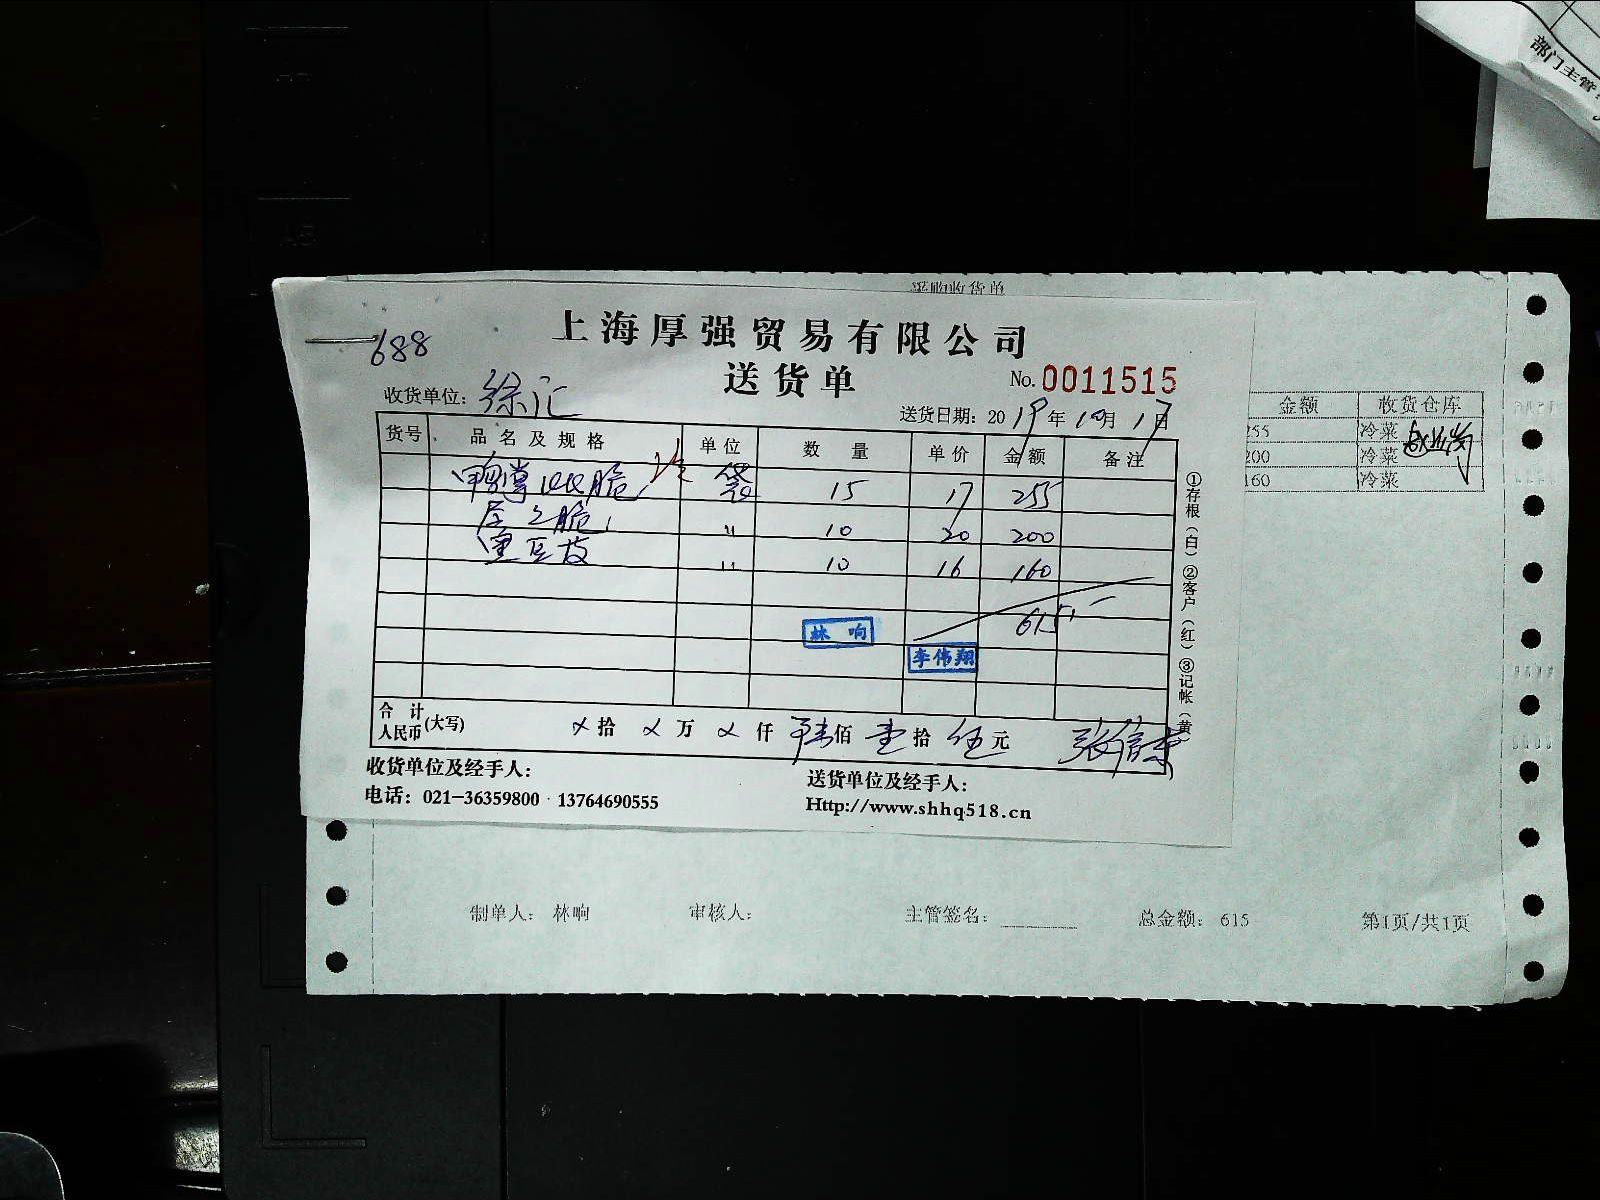 部门主管:
采购收货单
上海厚强贸易有限公司
688
送货单
No. 0011515
收货单位: 徐汇
送货日期: 2019年10月17日
货号 品名及规格 单位 数量 单价 金额 备注
鸭掌 脆 袋 15 17 255
脆 " 10 20 200
黑豆 " 10 16 160
615
林响
李伟翔
合计人民币(大写) ㄨ拾 ㄨ万 ㄨ仟 陆佰 壹拾 伍元
收货单位及经手人:
送货单位及经手人:
电话: 021-36359800 · 13764690555
Http://www.shhq518.cn
①存根(白)②客户(红)③记帐(黄)
金额 收货仓库
255 冷菜
200 冷菜
160 冷菜
制单人: 林响 审核人: 主管签名: 总金额: 615 第1页/共1页